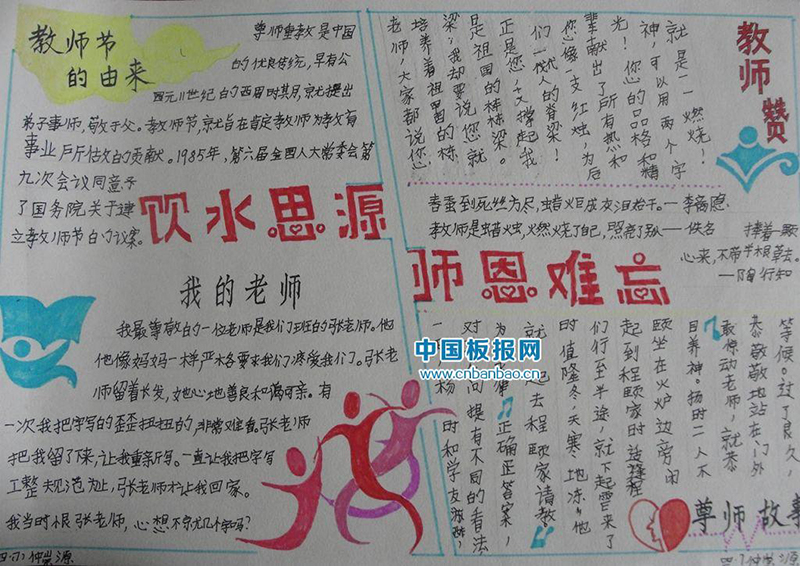 教师节
的由来
尊师重教是中国
的优良传统，早有公
四元11世纪的西周时其月，就提出
弟子事师，敬于父。教师节，就旨在肯定教师为教育
事业戶斤做的贡献。1985年，第六届全国人大常委会第
九次会议同意了
了国务院关于建
立教师节的议案。
饮水思源
师恩难忘
我的老师
我最尊敬的一位老师是我们班的张老师。他
他像妈妈一样严格要求我们疼爱我们。张老
师留着长发，她心地善良和蔼可亲。有
一次我把字写的歪歪扭扭的，非常难看。张老师
把我留了下来，让我重新写。一直让我把字写
工整规范为止，张老师才让我回家。
我当时恨张老师，心想不就几个字吗？
四.(7) 仲崇源
教师赞
老师，大家都说您
培养着祖国的栋
梁；我却要说，您就
是祖国的栋梁。
正是您，又撑起我
们一代人的脊梁！
您像一支红烛，为后
辈献出了所有热和
光！您的品格和精
神，可以用两个字
就是——燃烧！
春蚕到死丝方尽，蜡炬成灰泪始干。—李商隐
教师是蜡烛，燃烧了自己，照亮了别人—佚名
捧着一颗
心来，不带半根草去。
—陶行知
中国板报网
www.cnbanbao.cn
尊师故事
杨时和学友游酢，
对问提有不同的看法
正确正答案，
就一起去程颐家请教
时值隆冬，天寒地冻，他
们行至半途，就下起雪来了
起到程颐家时
颐坐在火炉边旁闭
目养神。杨时二人不
敢惊动老师，就恭
恭敬敬地站在门外
等候。过了良久，
四.7 仲崇源